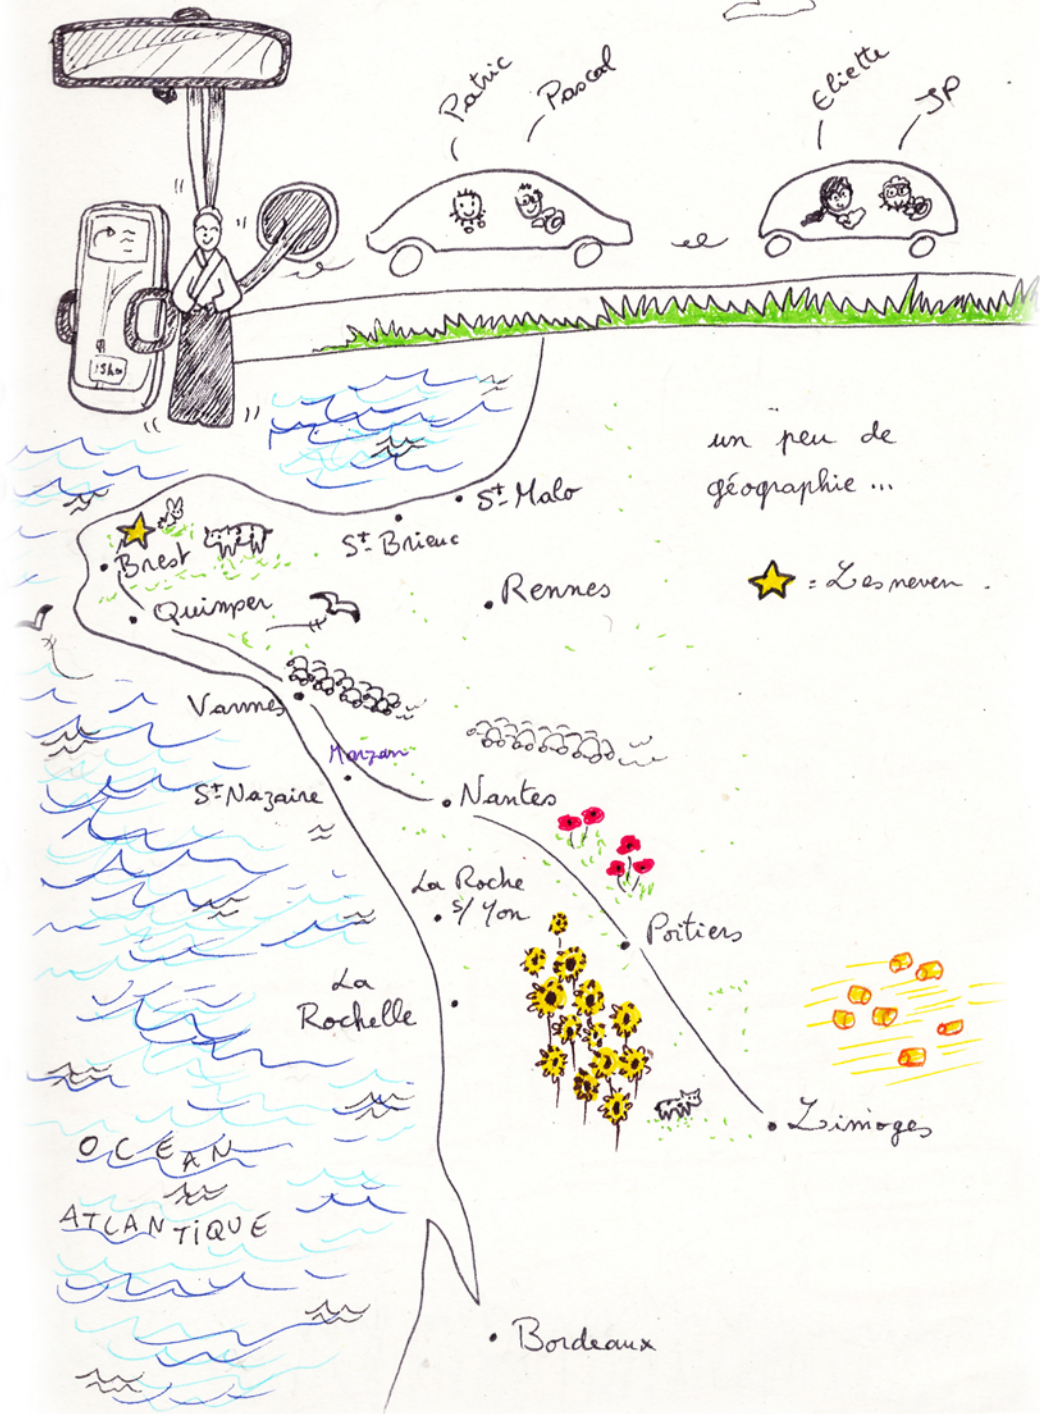 Patric
Pascal
Eliette
JP
un peu de
géographie ...
St Malo
St Brieuc
Brest
= Lesneven .
Rennes
Quimper
Vannes
Marzan
St Nazaire
Nantes
La Roche
s/ Yon
Poitiers
La
Rochelle
Limoges
OCEAN
ATLANTIQUE
Bordeaux